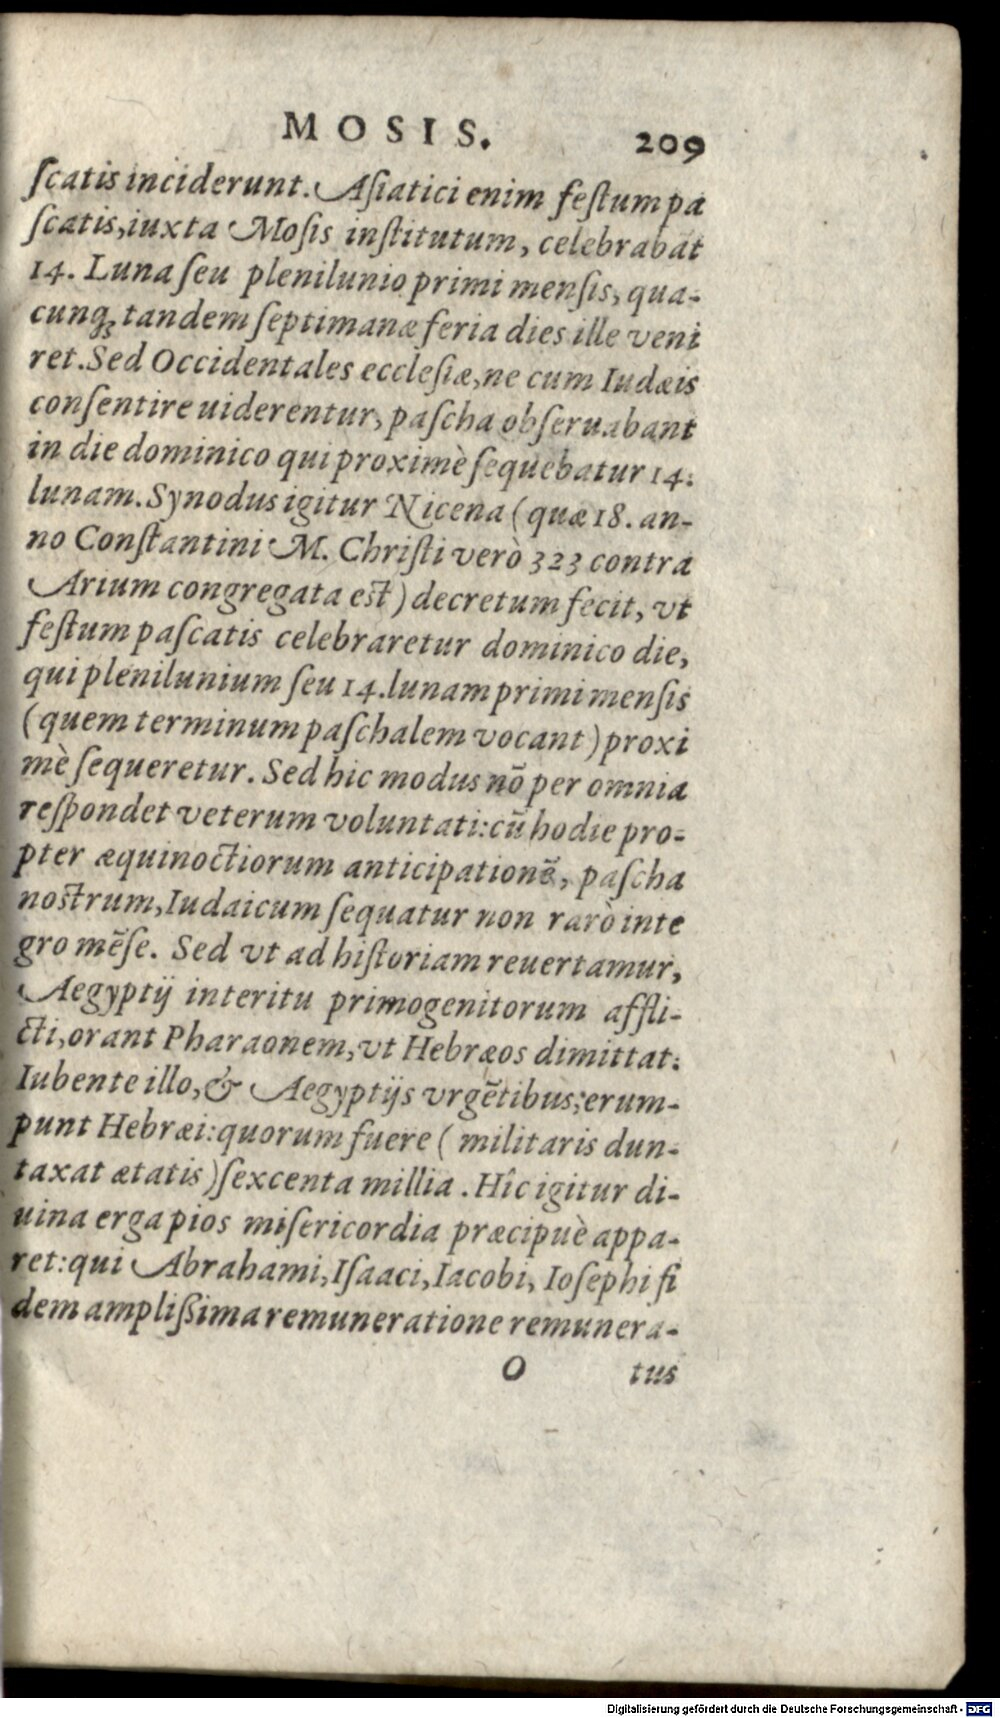 MOSIS. 209
ſcatis inciderunt. Aſiatici enim feſtum pa
ſcatis, iuxta Moſis inſtitutum, celebrabāt
14. Luna ſeu plenilunio primi menſis, qua-
cunq; tandem ſeptimanæ feria dies ille veni
ret. Sed Occidentales eccleſiæ, ne cum Iudæis
conſentire uiderentur, paſcha obſeruabant
in die dominico qui proximè ſequebatur 14.
lunam. Synodus igitur Nicena (quæ 18. an-
no Conſtantini M. Chriſti verò 323 contra
Arium congregata eſt) decretum fecit, vt
feſtum paſcatis celebraretur dominico die,
qui plenilunium ſeu 14. lunam primi menſis
(quem terminum paſchalem vocant) proxi
mè ſequeretur. Sed hic modus nō per omnia
reſpondet veterum voluntati: cū hodie pro-
pter æquinoctiorum anticipationē, paſcha
noſtrum, Iudaicum ſequatur non rarò inte
gro mēſe. Sed vt ad hiſtoriam reuertamur,
Aegyptij interitu primogenitorum affli-
cti, orant Pharaonem, vt Hebræos dimittat:
Iubente illo, & Aegyptijs vrgētibus; erum-
punt Hebræi: quorum fuere ( militaris dun-
taxat ætatis) ſexcenta millia. Hîc igitur di-
uina erga pios miſericordia præcipuè appa-
ret: qui Abrahami, Iſaaci, Iacobi, Ioſephi fi
dem ampliſsima remuneratione remunera-
O tus
Digitalisierung gefördert durch die Deutsche Forschungsgemeinschaft - DFG